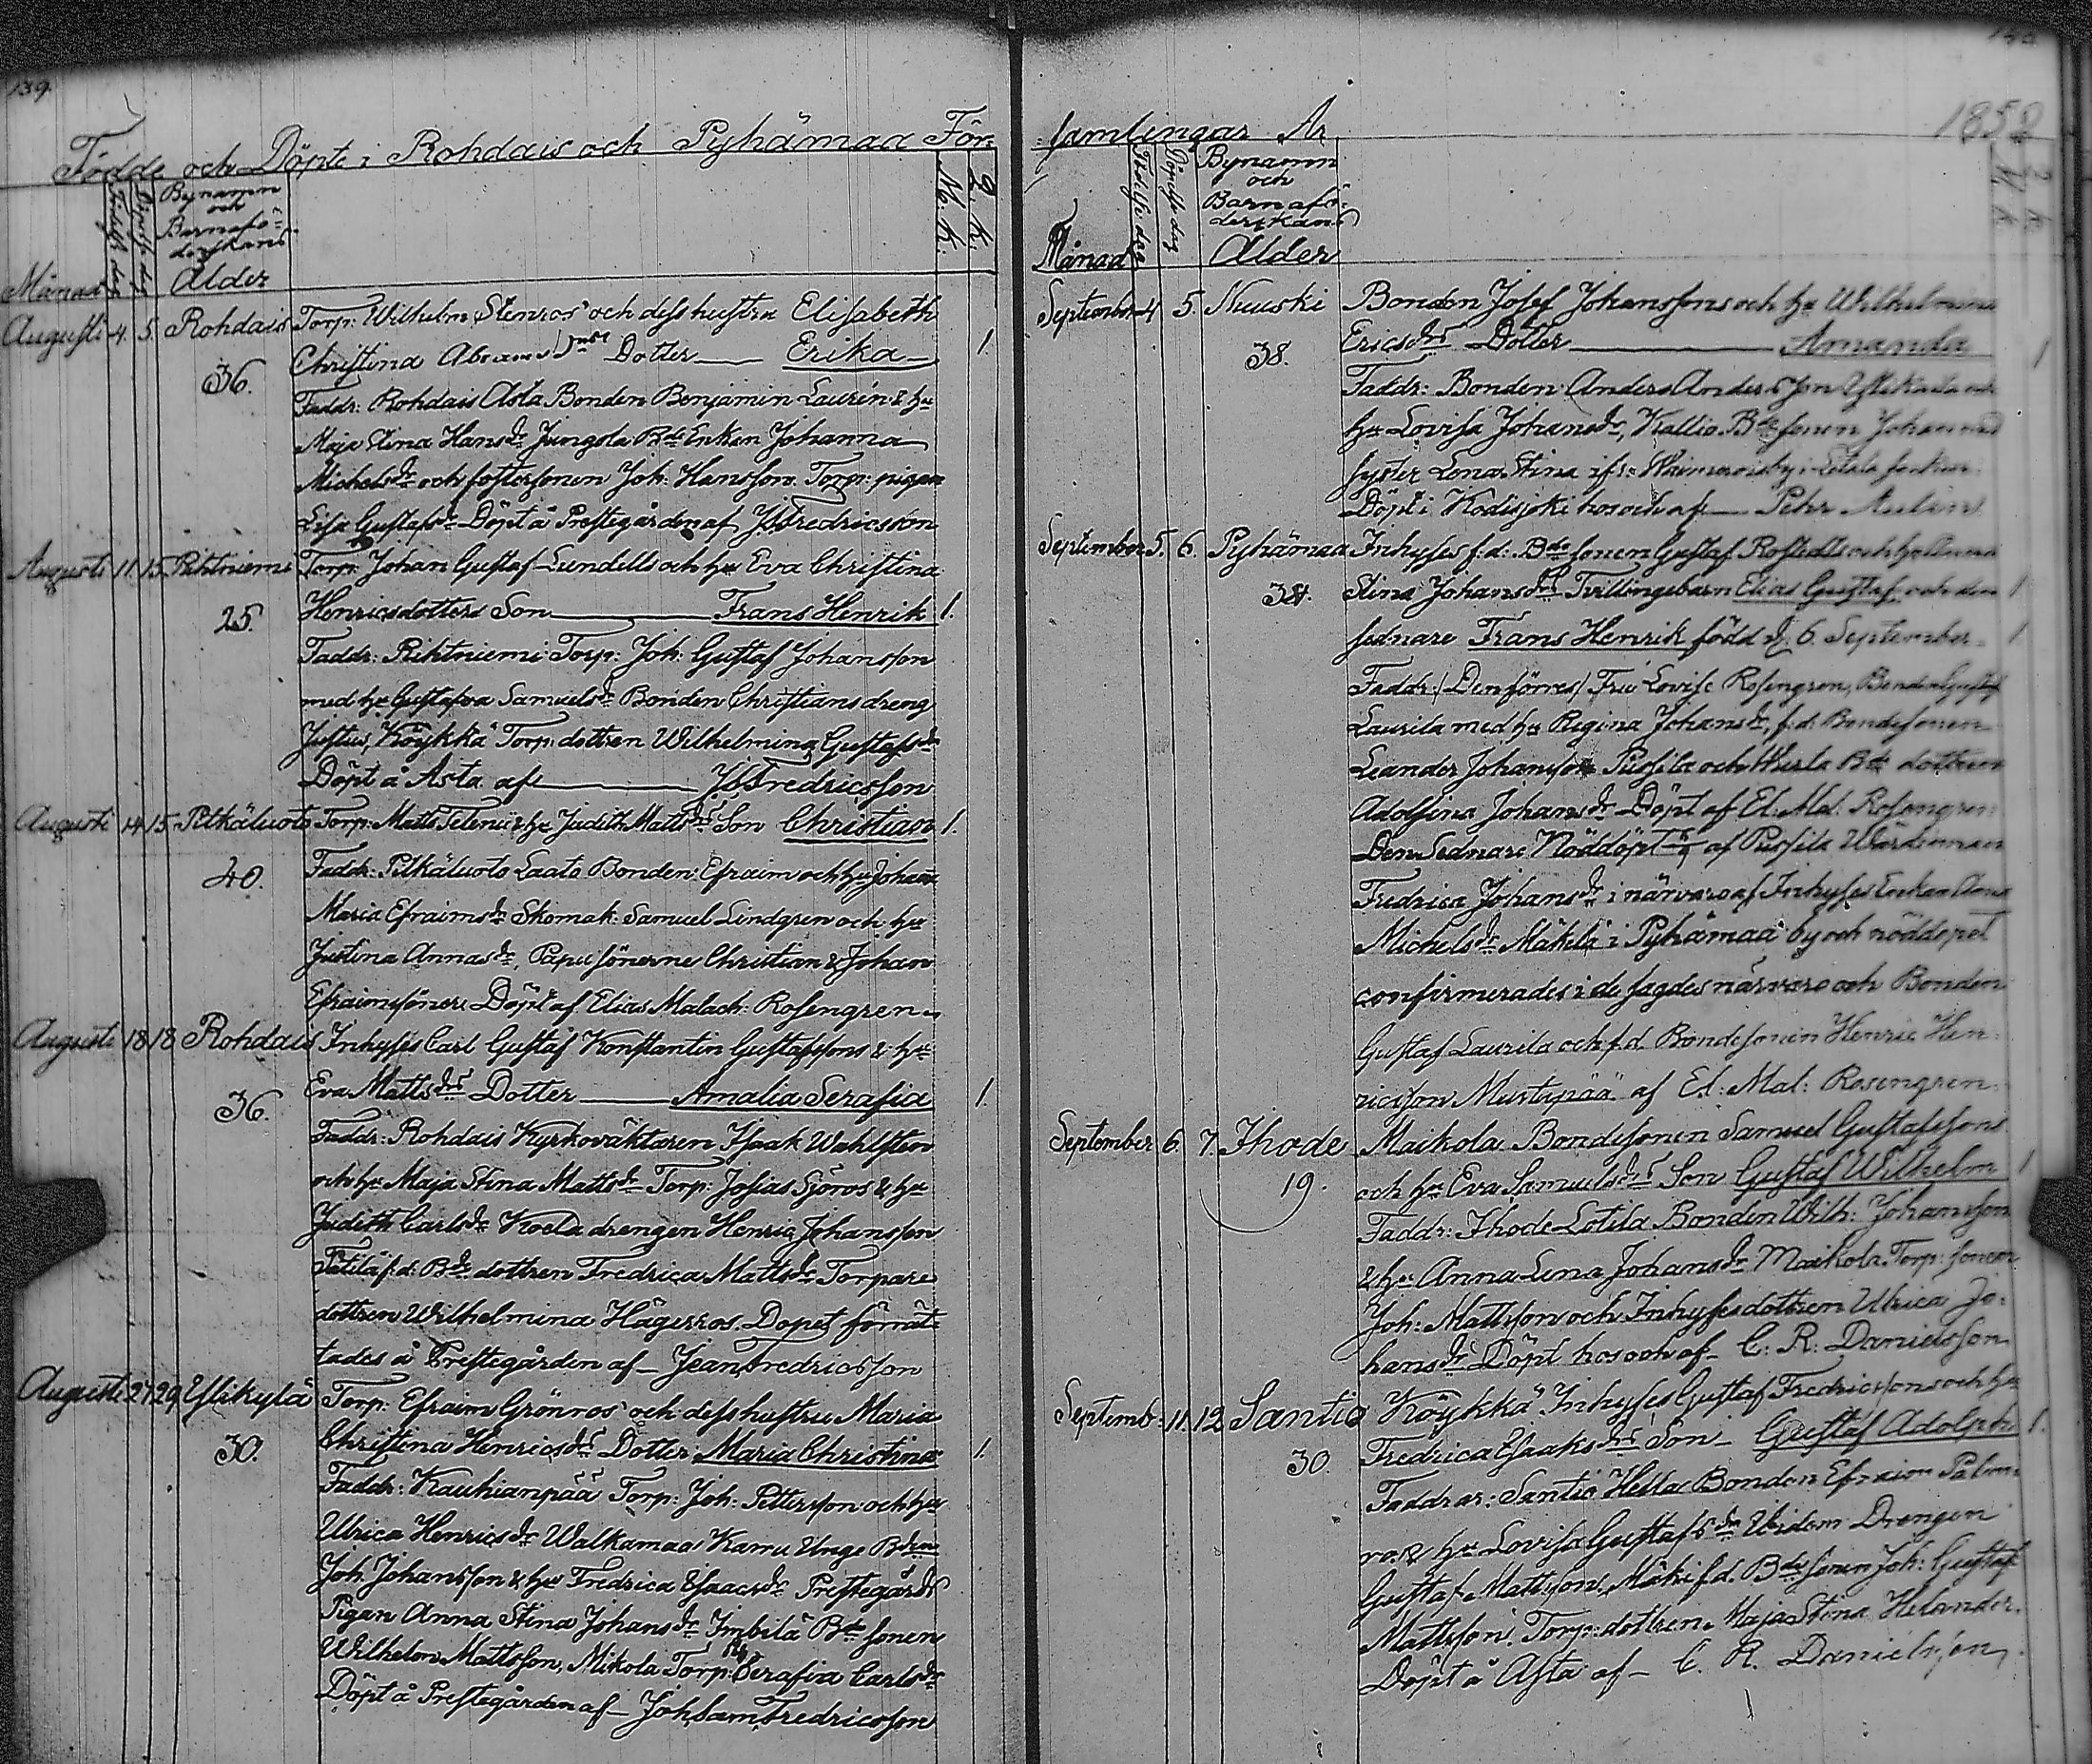 139.
Födde och Döpte i Rohdais och Pyhämaa För-
Månad
Födelse dag
Döpelse dag
Bynamn
och
Barnafö-
derskans
Ålder
M. K.
Q. K.
Augusti 4. 5. Rohdais Torp: Wilhelm Stenros' och dess hustru Elisabeth
36. Christina Abrams Dotter — Erika 1.
Faddr: Rohdais Asta Bonden Benjamin Laurén & hu
Maja Stina Hansdr Jungola Bde Enkan Johanna
Michelsdr och fostersonen Joh: Hansson Torp: pigan
Lisa Gustafsdr Döpt å Prestegården af JS Fredricsson
Augusti 11 15 Rihtniemi Torp: Johan Gustaf Lundells och hu Eva Christina
25. Henricsdotters Son — Frans Henrik 1.
Faddr: Rihtniemi Torp: Joh: Gustaf Johansson
med hu Gustafva Samuelsdr Bonden Christians dreng
Justus, Köykkä Torp: dottren Wilhelmina Gustafsdr
Döpt å Asta af — JS Fredricsson
Augusti 14 15 Pitkäluoto Torp: Matts Telenii & hu Judith Mattsdrs Son Christian 1.
40. Faddr: Pitkäluoto Laato Bonden: Efraim och hu Johana
Maria Efraimsdr Skomak: Samuel Lindgren och hu
Justina Annasdr, Papu sönerne Christian & Johan
Efraimsöner Döpt af Elias Malach: Rosengren
Augusti 18 18 Rohdais Inhyses Carl Gustaf Konstantin Gustafssons & hu
36. Eva Mattsdrs Dotter — Amalia Serafia 1.
Faddr: Rohdais Kyrkoväktaren Isaak Wahlsten
och hu Maja Stina Mattsdr Torp: Josias Sjöros & hu
Judith Carlsdr Koela drengen Henric Johansson
f.d. Bde dottren Fredrica Mattsdr Torpare
dottren Wilhelmina Hägerros. Dopet förrät-
tades å Prestegården af — Jean Fredricsson
Augusti 27 29 Ylikylä Torp: Efraim Grönros' och dess hustru Maria
30. Christina Henricsdrs Dotter Maria Christina 1.
Faddr: Kauhianpää Torp: Joh: Pettersson och hu
Ulrica Henricsdr Walkamaa Kamu Unge Bden
Joh: Johansson & hu Fredrica Isaacsdr Prestegårds
Pigan Anna Stina Johansdr Imbilä Bde sonen
Wilhelm Mattsson, Mikola Torp: Serafia Carlsdr
Döpt å Prestegården af — Joh Sam Fredricsson
samlingar År 1852
Månad
Födelse dag
Döpelse dag
Bynamn
och
Barnafö-
derskans
Ålder
M. K.
Q. K.
September 4 5. Nuuski Bonden Josef Johanssons och hu Wilhelmina
38. Ericsdrs Dotter — Amanda 1
Faddr: Bonden Anders Andersson och
hu Lovisa Johansdr, Kallio Bde sonen Johannes
syster Lena Stina ifr:
Döpt i Kodisjoki hos och af — Pehr Aulin
September 5. 6. Pyhämaa Inhyses f.d. Bde sonen Gustaf Rostedts och hu Anna
38. Stina Johansdrs Tvillingebarn Elias Gustaf och den 1
sednare Frans Henrik född d. 6. September 1
Faddr: (Den förres) Fru Lovise Rosengren, Bonden Gustaf
Laurila med hu Regina Johansdr, f.d. Bondesonen
Leander Johansson Pussila och Bde dottren
Adolfina Johansdr Döpt af El: Mal: Rosengren
Den Sednare Nöddöpt af Pussila Wärdinnan
Fredrica Johansdr i närvaro af Inhyses Enkan Anna
Michelsdr Mäkilä i Pyhämaa by och nöddopet
confirmerades i de sagdes närvaro och Bonden
Gustaf Laurila och f.d. Bondesonen Henric Hen-
ricsson Mustapää af El: Mal: Rosengren
September 6. 7. Ihode Maikola Bondesonen Samuel Gustafssons
19. och hu Eva Samuelsdrs Son Gustaf Wilhelm 1
Faddr: Ihode Lotila Bonden Wilh: Johansson
& hu Anna Lena Johansdr Maikola Torp: sonen
Joh: Mattsson och Inhysesdottren Ulrica Jo-
hansdr Döpt hos och af — C: R: Danielsson
Septemb: 11. 12 Santio Köykkä Inhyses Gustaf Fredricssons och hu
30. Fredrica Isaaksdrs Son — Gustaf Adolph 1.
Faddrar: Santio Hella Bonden Efraim Palm-
ros & hu Lovisa Gustafsdr Ibidem Drengen
Gustaf Mattsson, Mäki f.d. Bde sonen Joh: Gustaf
Mattsson, Torp: dottren Maja Stina Helander
Döpt å Asta af — C. R. Danielsson